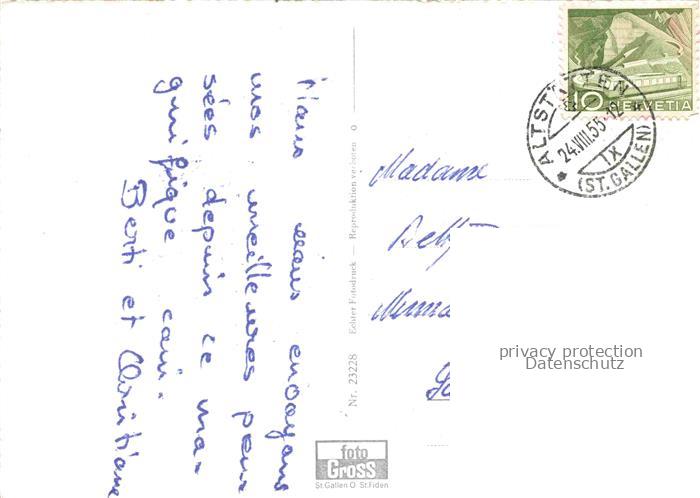 Nous vous envoyons
nos meilleures pen-
sées depuis ce ma-
gnifique coin.
Berti et Christiane
Nr. 23228 Echter Fotodruck — Reproduktion verboten
Madame
foto
GROSS
St. Gallen O St. Fiden
10 HELVETIA
ALTSTÄTTEN
24.VIII.55-12
IX
(ST. GALLEN)
privacy protection
Datenschutz